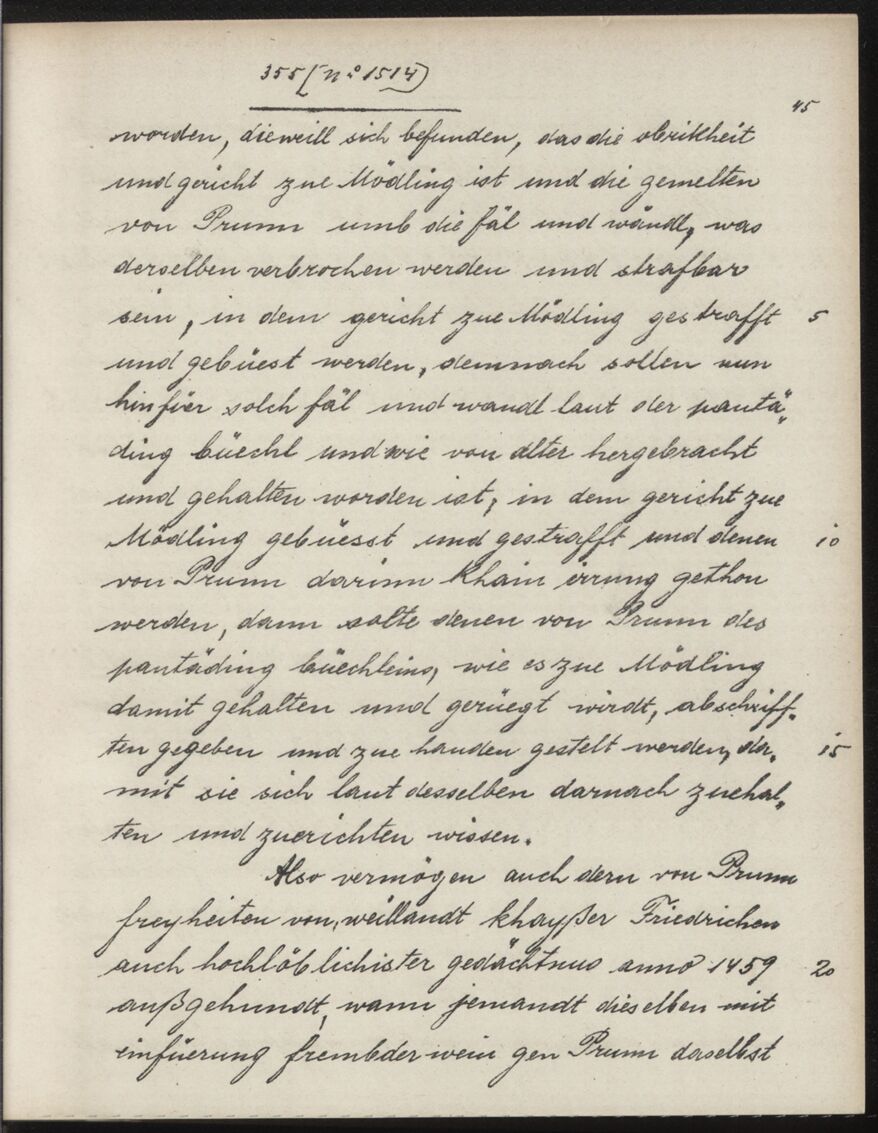 355 (No 1514)
45
worden, dieweill sich befunden, das die obrikheit
und gericht zue Mödling ist und die gemelten
von Prunn umb die fäl und wändl, was
derselben verbrochen werden und strafbar
sein, in dem gericht zue Mödling gestrafft 5
und gebüest werden, demnach sollen nun
hinfüer solch fäl und wandl laut der pantä„
ding büechl und wie von alter hergebracht
und gehalten worden ist, in dem gericht zue
Mödling gebüesst und gestrafft und denen 10
von Prunn darinn khain irrung gethon
werden, dann solte denen von Prunn des
pantäding büechleins, wie es zue Mödling
damit gehalten und gerüegt wirdt, abschriff„
ten gegeben und zue handen gestelt werden, da„ 15
mit sie sich laut desselben darnach zuehal„
ten und zuerichten wissen.
Also vermögen auch dern von Prunn
freyheiten von weillandt khayßer Friedrichen
auch hochlöblichister gedächtnus anno 1459 20
außgehundt, wann jemandt dieselben mit
einfüerung frembder wein gen Prunn daselbst